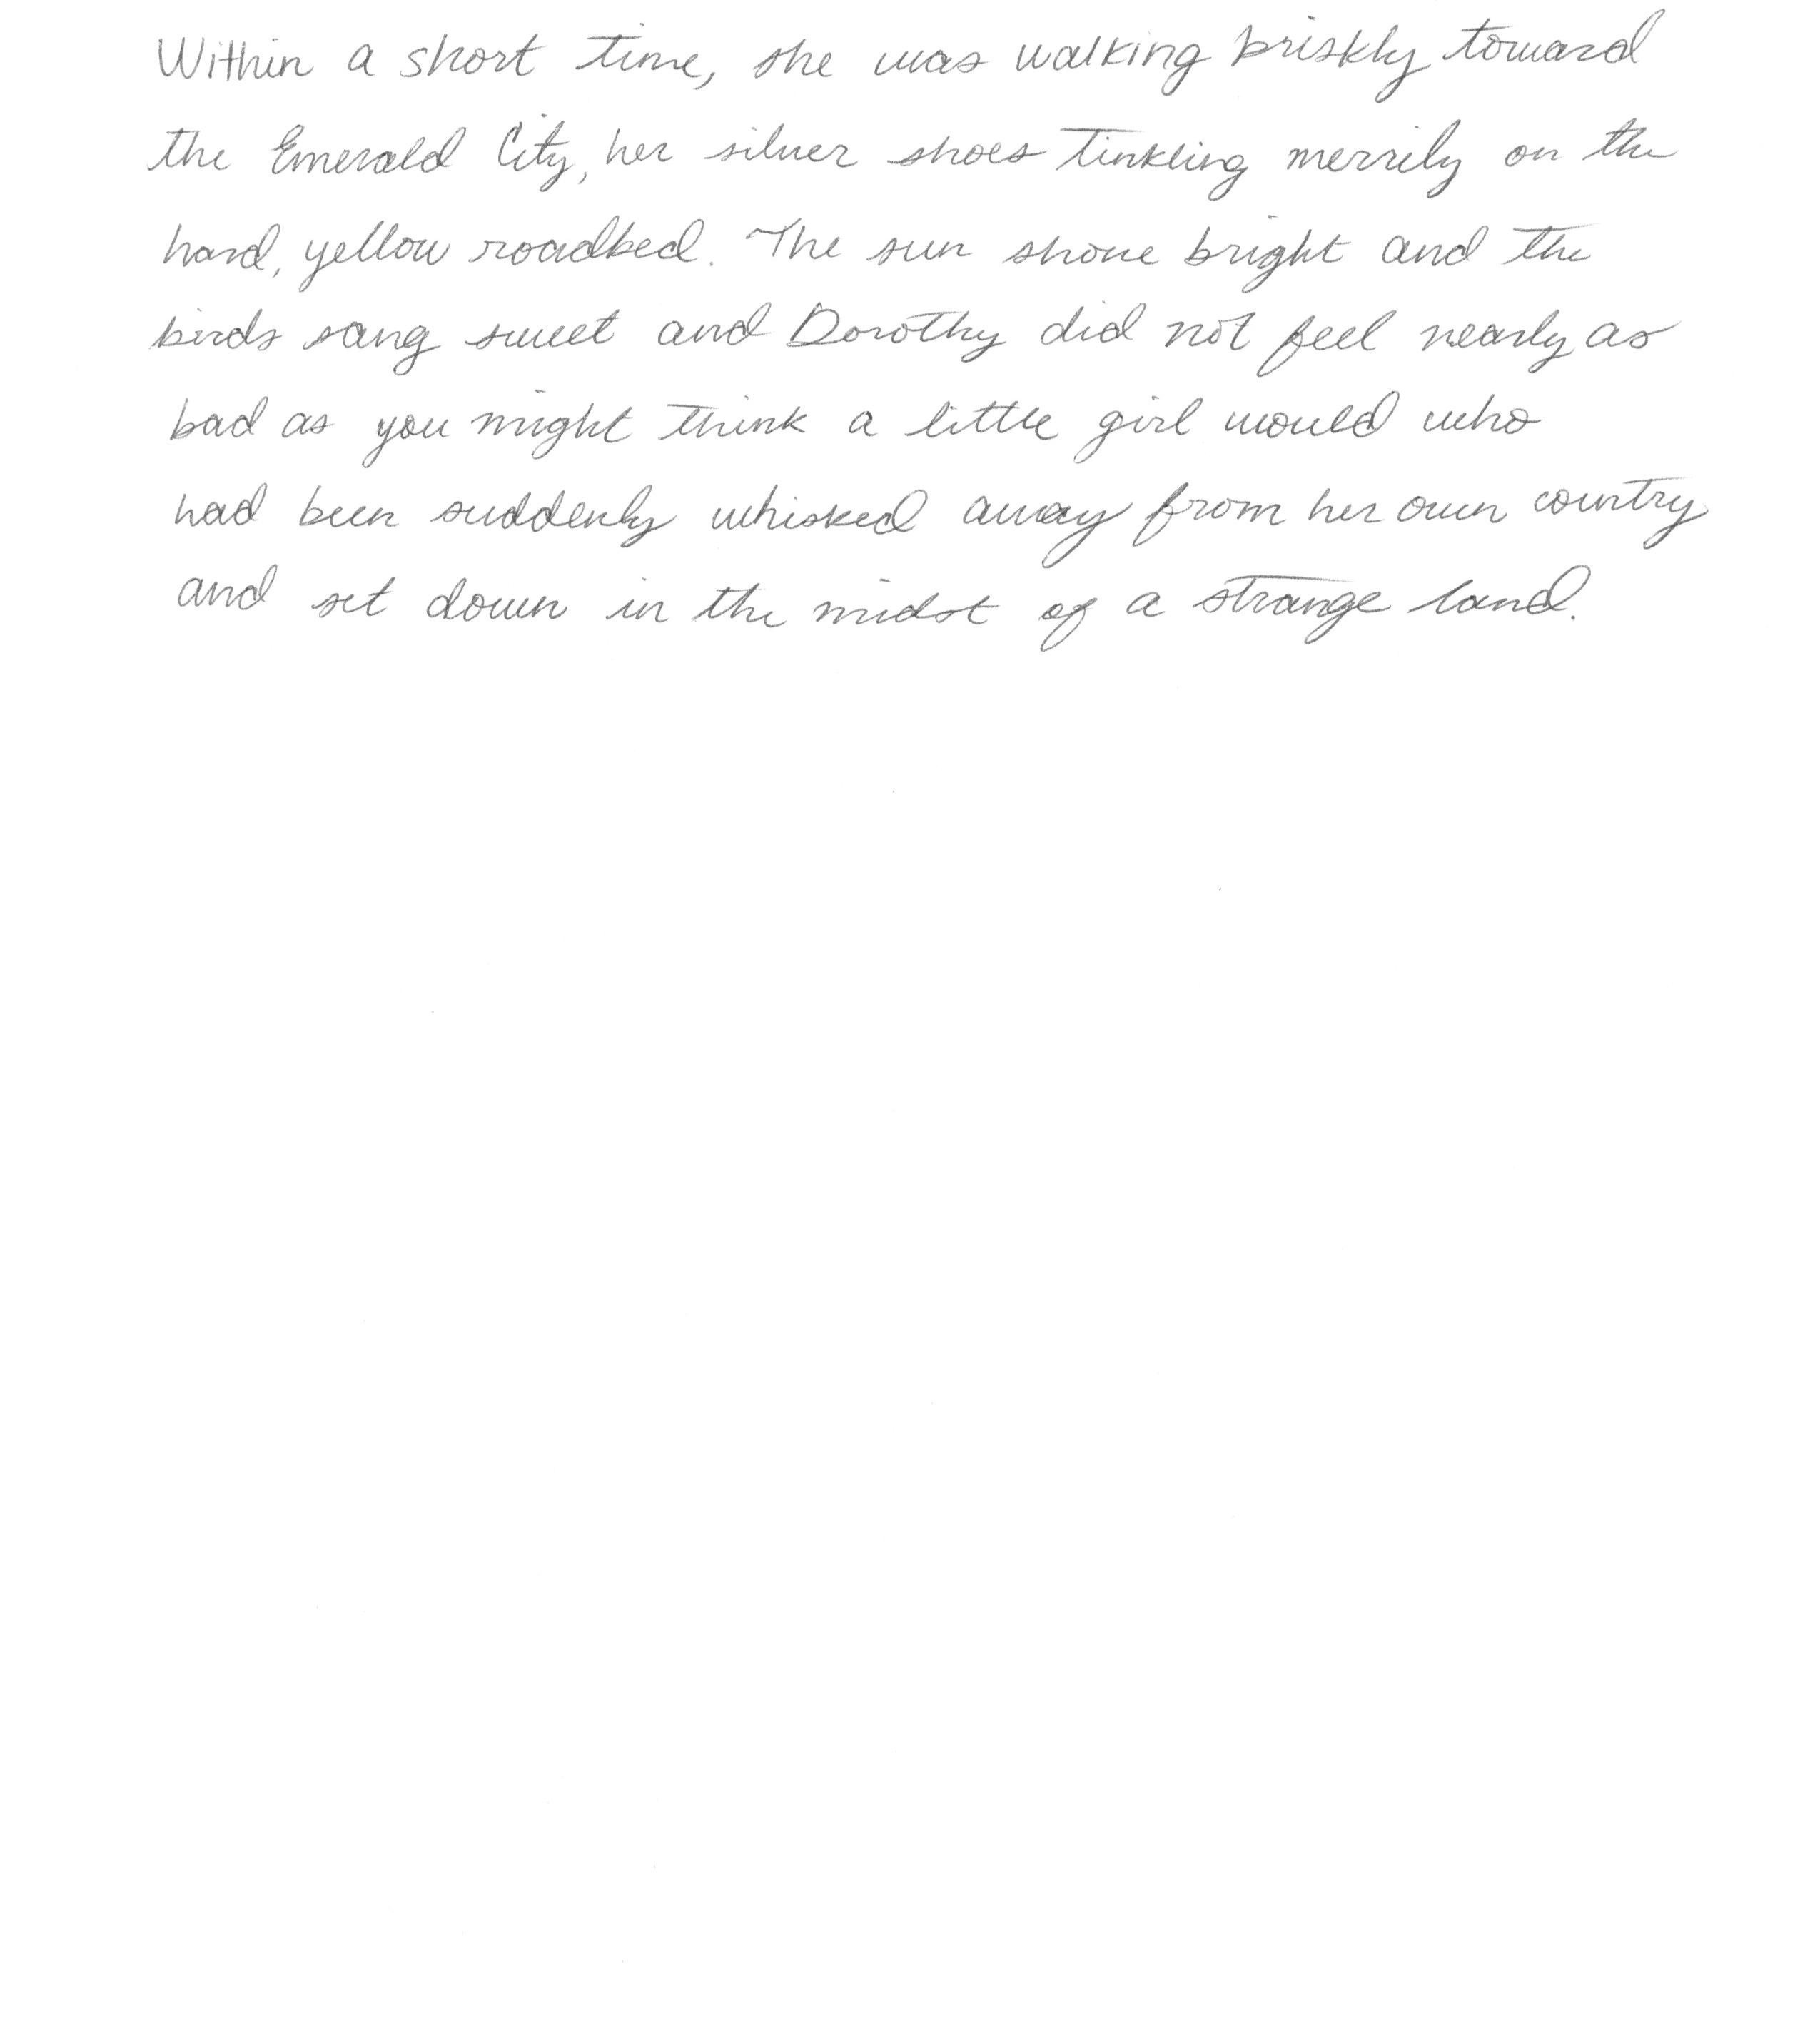 Within a short time, she was walking briskly toward
the Emerald City, her silver shoes tinkling merrily on the
hard, yellow roadbed. The sun shone bright and the
birds sang sweet and Dorothy did not feel nearly as
bad as you might think a little girl would who
had been suddenly whisked away from her own country
and set down in the midst of a strange land.